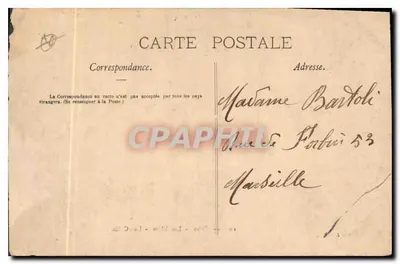 CARTE POSTALE
Correspondance.
Adresse.
La Correspondance au recto n'est pas acceptée par tous les pays
étrangers. (Se renseigner à la Poste.)
Madame Bartoli
Rue de Forbin 53
Marseille
Delcampe